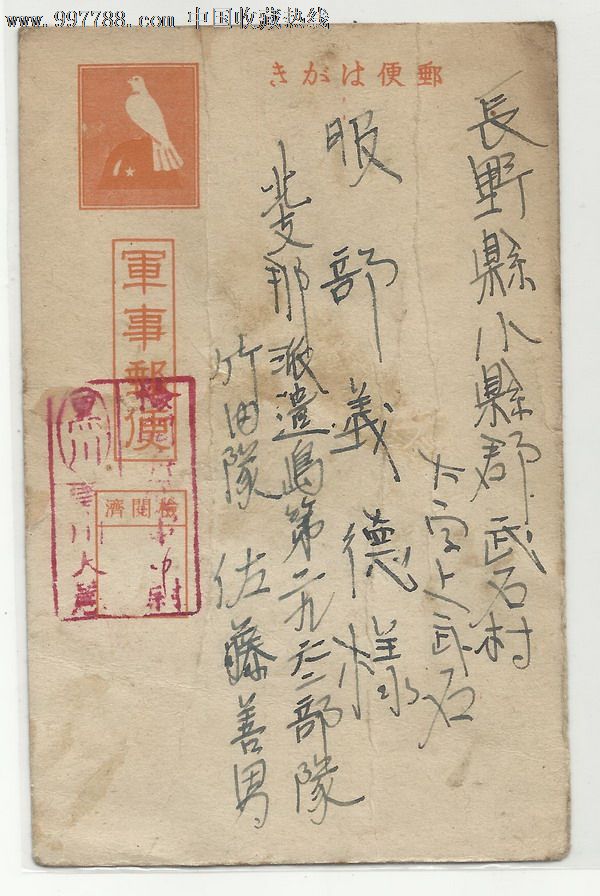 www.997788.com 中国收藏热线
きがは便郵
長野縣小縣郡武石村
大字上武石
服部義德様
北支那派遣嶌第二九六二部隊
竹田隊 佐藤善男
軍事郵便
濟閱檢
黒川